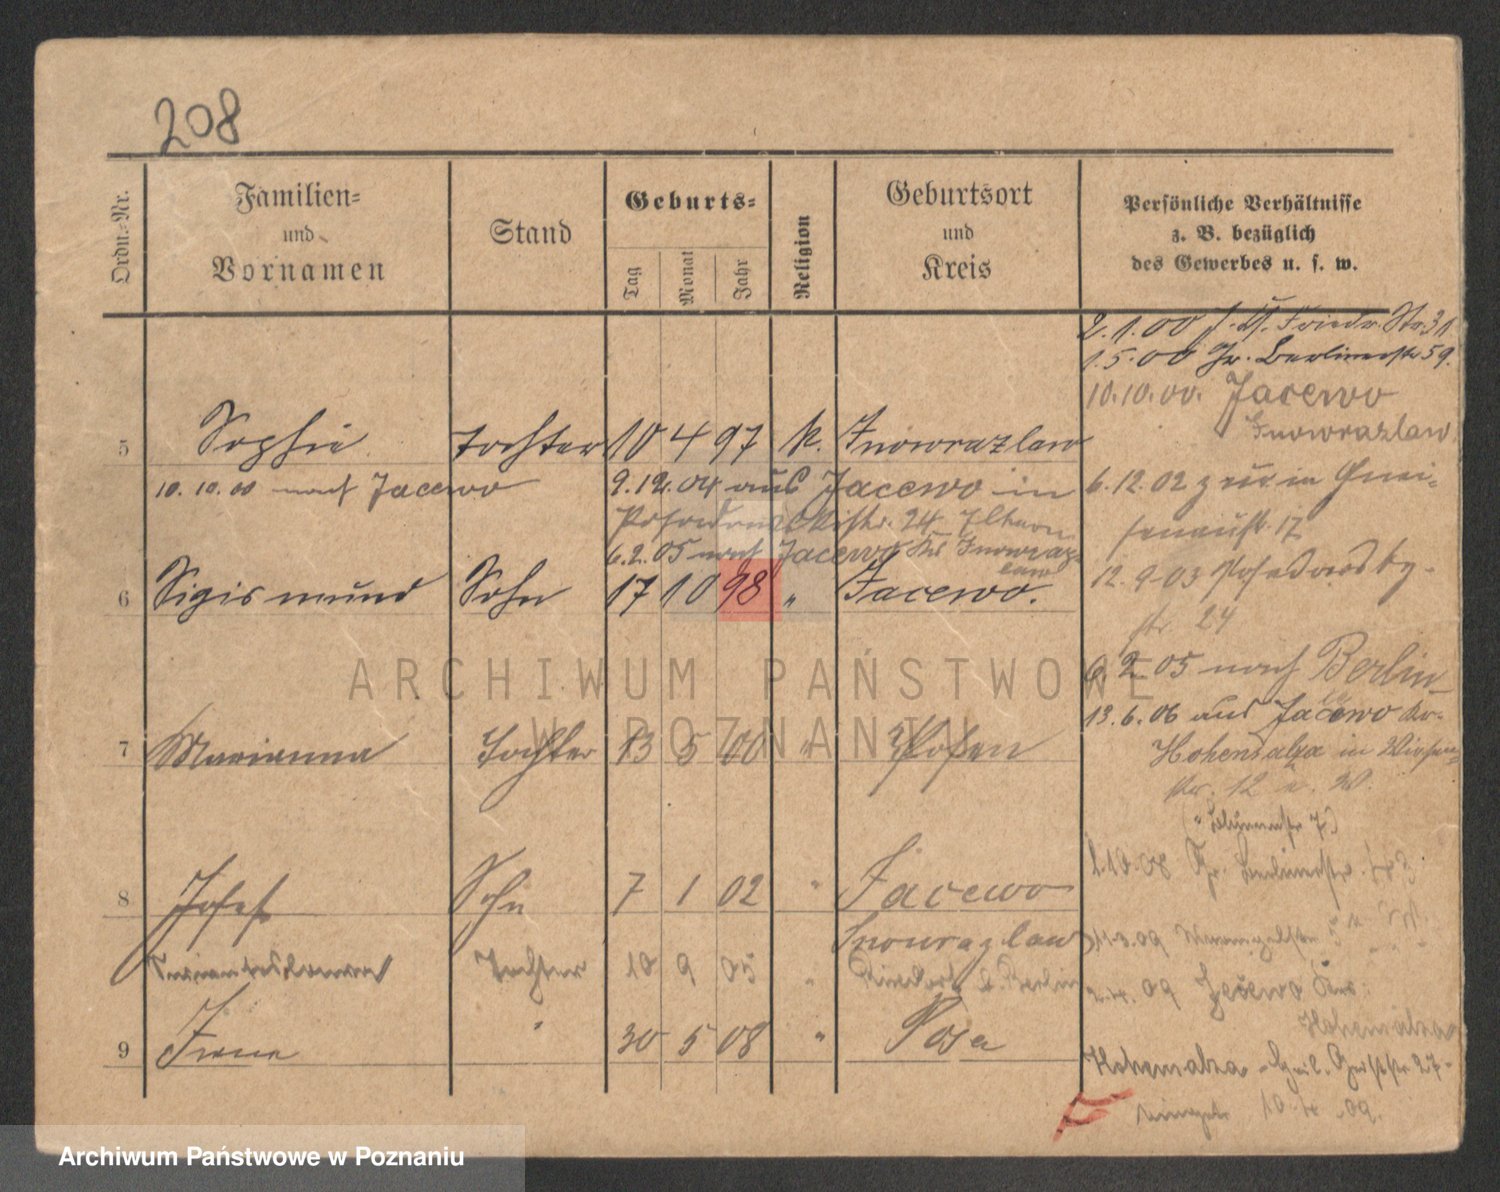 208
Ordn.-Nr.
Familien-
und
Vornamen
Stand
Geburts-
Tag
Monat
Jahr
Religion
Geburtsort
und
Kreis
Persönliche Verhältnisse
z. B. bezüglich
des Gewerbes u. s. w.
2.1.00 Friedr. Str. 31
1.5.00 Berlinerstr 59.
10.10.00. Jacewo
Inowrazlaw
5 Sophie Tochter 10 4 97 K. Inowrazlaw
10.10.00 nach Jacewo
9.12.04 aus Jacewo in
24
6.2.05 nach Jacewo Kr Inowraz-
law
6.12.02 zur. in Gnei-
senaustr. 17
6 Sigismund Sohn 17 10 98 " Jacewo.
12.9.03 Posadowsky-
str 24
6.2.05 nach Berlin
13.6.06 aus Jacewo Kr.
7 Marianna Tochter 13 5 00 " Posen
Hohensalza in
str. 12
1.10.08 Berlinerstr.
8 Josef Sohn 7 1 02 " Jacewo
Inowrazlaw
11.3.09
Tochter 10 9 05 " Rixdorf b. Berlin
2.4.09 Jacewo Kr.
Hohensalza
9 Irene " 30 5 08 " Posen
Hohensalza 27
10.4.09.
ARCHIWUM PAŃSTWOWE
W POZNANIU
Archiwum Państwowe w Poznaniu